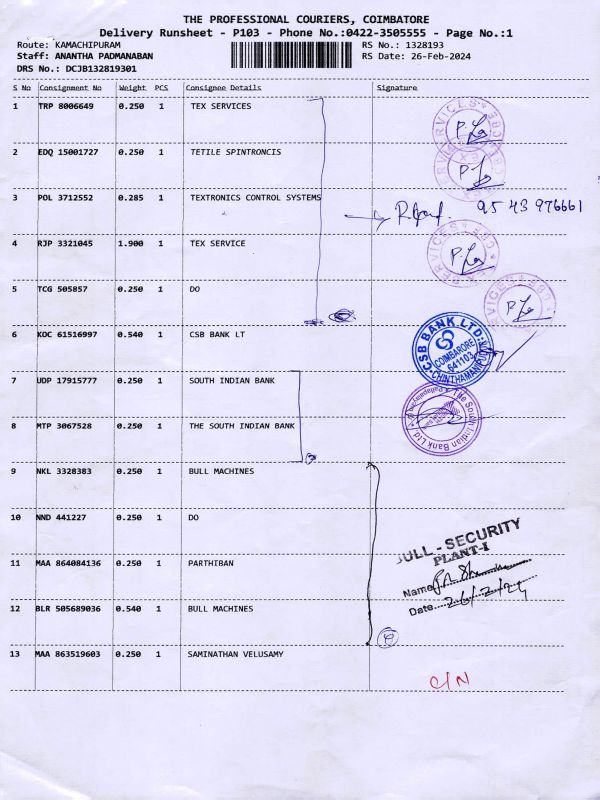 THE PROFESSIONAL COURIERS, COIMBATORE
Delivery Runsheet - P103 - Phone No.:0422-3505555 - Page No.:1
Route: KAMACHIPURAM RS No.: 1328193
Staff: ANANTHA PADMANABAN RS Date: 26-Feb-2024
DRS No.: DCJB132819301
S No Consignment No Weight PCS Consignee Details Signature
1 TRP 8006649 0.250 1 TEX SERVICES
2 EDQ 15001727 0.250 1 TETILE SPINTRONCIS
3 POL 3712552 0.285 1 TEXTRONICS CONTROL SYSTEMS
95 43 976661
4 RJP 3321045 1.900 1 TEX SERVICE
5 TCG 505857 0.250 1 DO
6 KOC 61516997 0.540 1 CSB BANK LT
CSB BANK LTD.
COIMBATORE
641103
7 UDP 17915777 0.250 1 SOUTH INDIAN BANK
8 MTP 3067528 0.250 1 THE SOUTH INDIAN BANK
The South Indian Bank Ltd.
9 NKL 3328383 0.250 1 BULL MACHINES
10 NND 441227 0.250 1 DO
11 MAA 864084136 0.250 1 PARTHIBAN
BULL - SECURITY
PLANT-I
Name
12 BLR 505689036 0.540 1 BULL MACHINES
Date 26/2/24
13 MAA 863519603 0.250 1 SAMINATHAN VELUSAMY
C/N